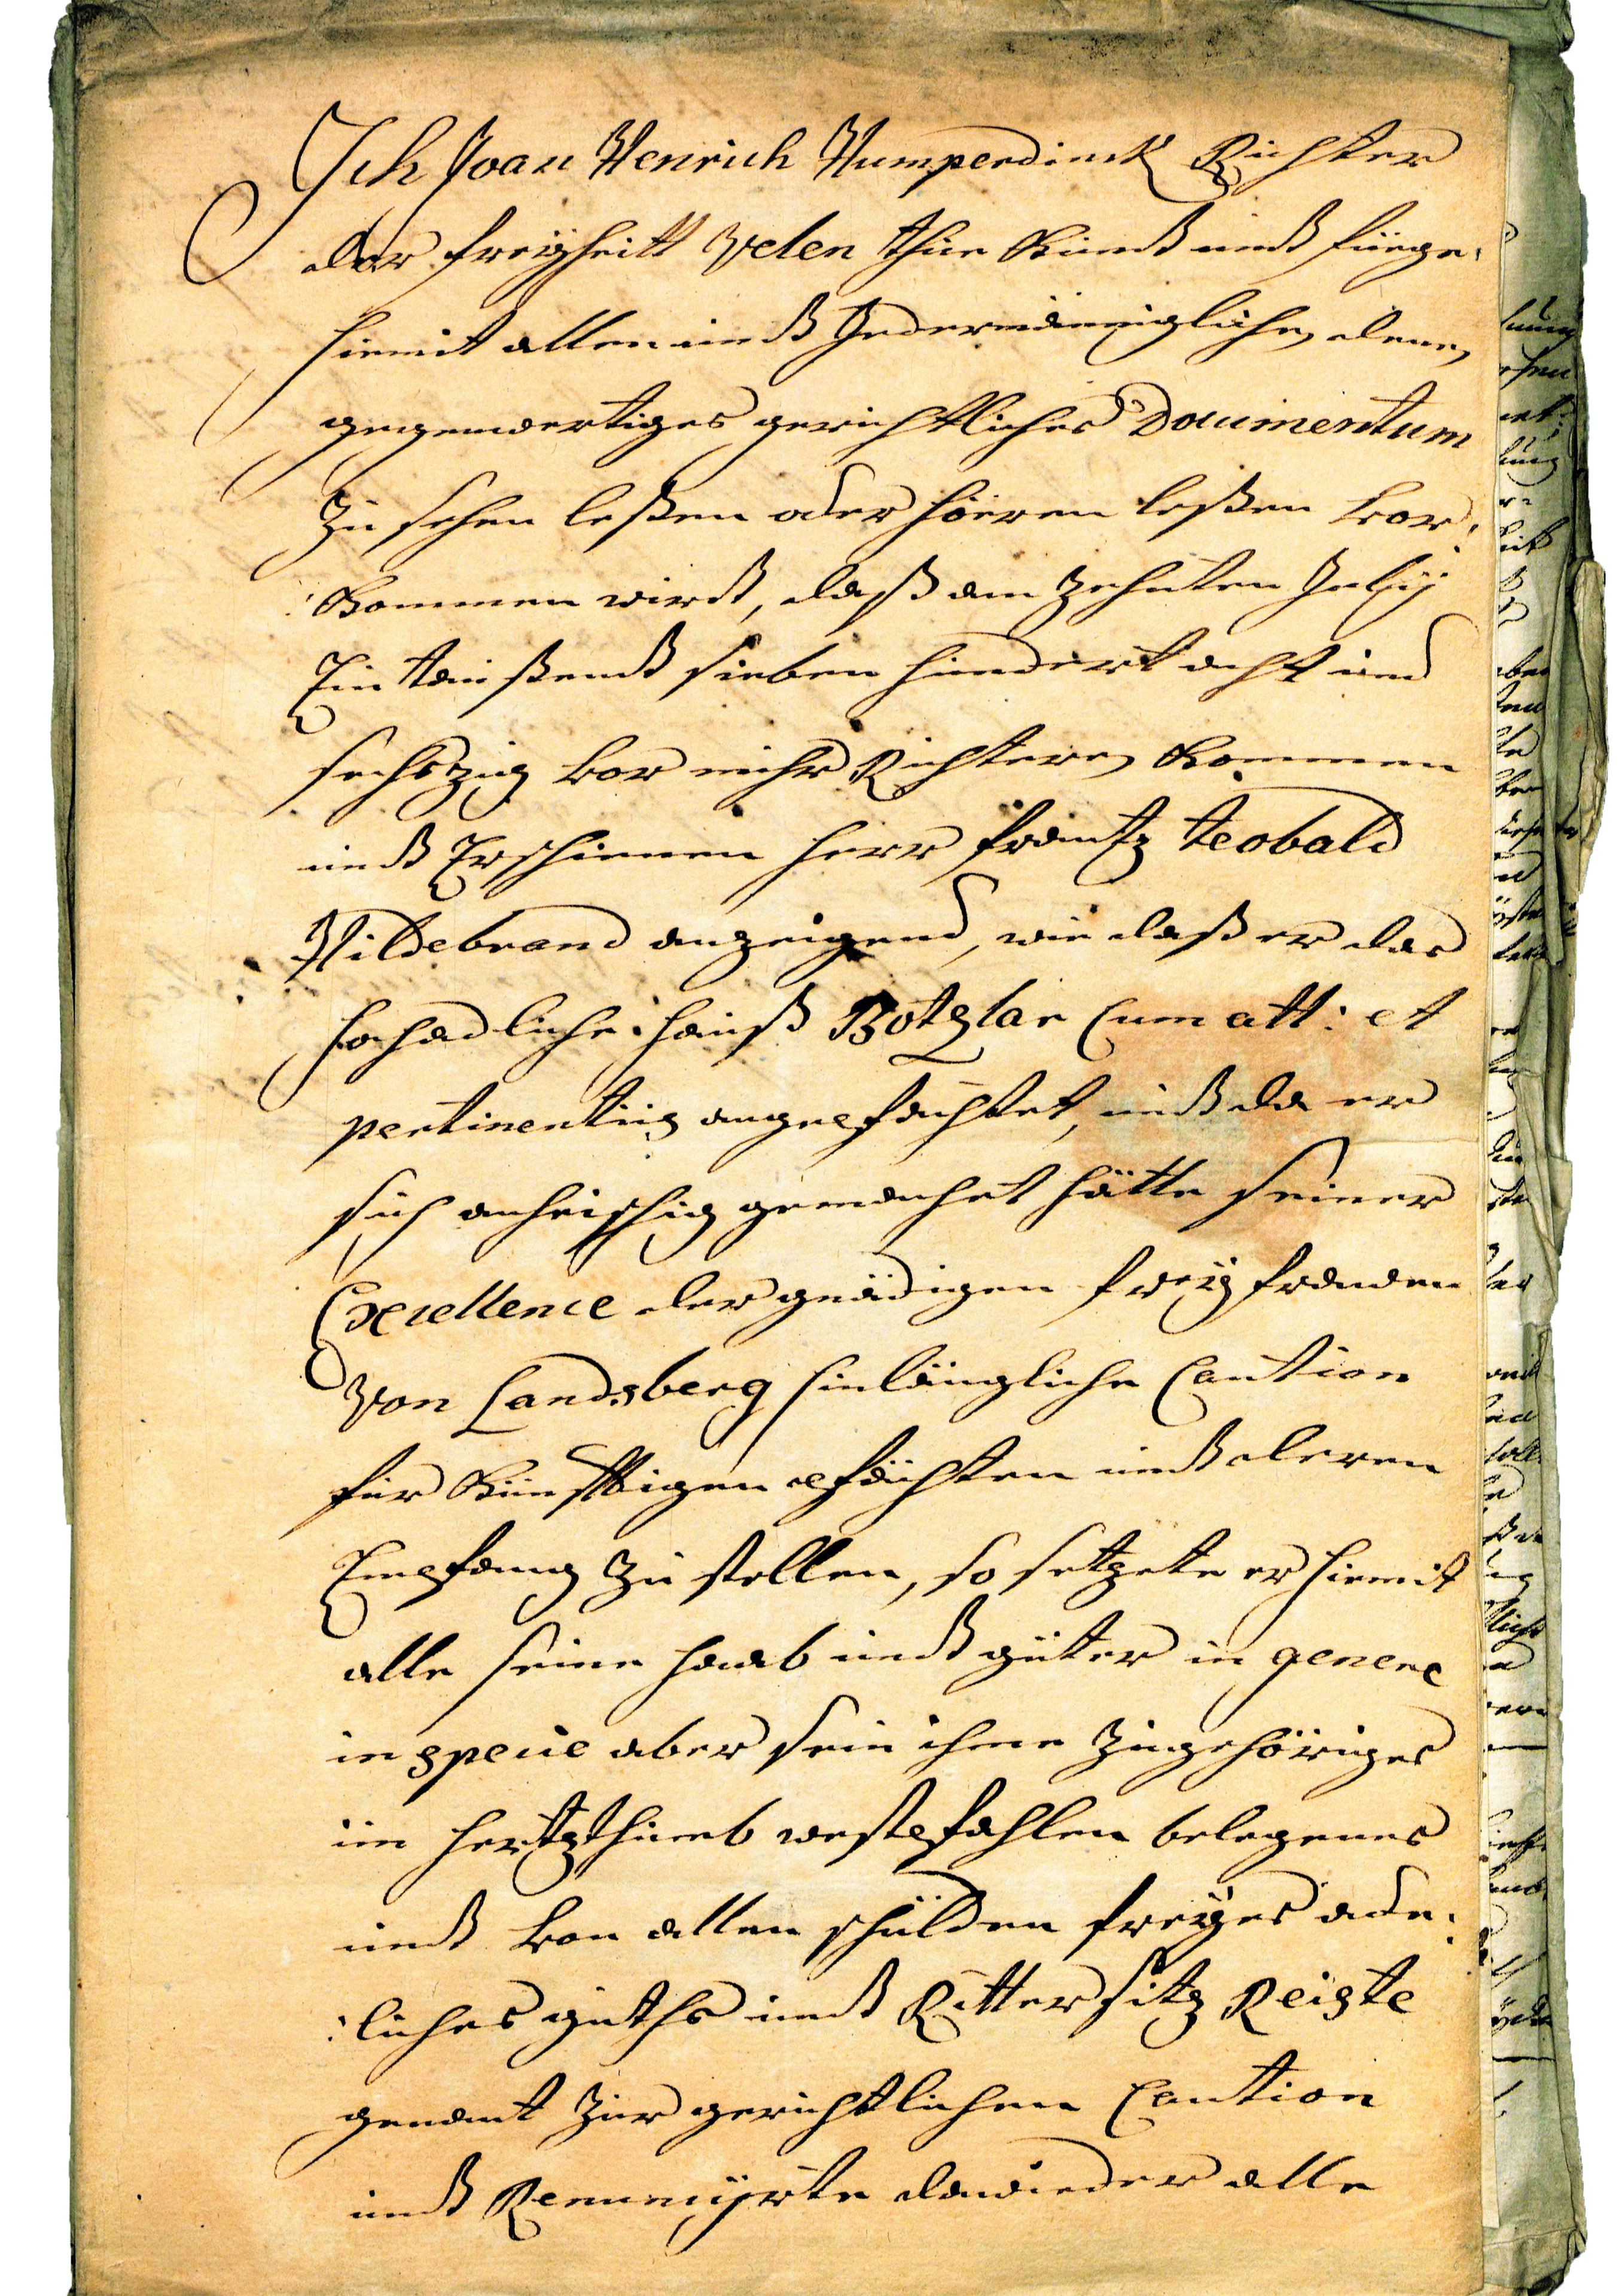 Ich Joan Henrich Humperdinck Richter
der freÿheitt Velen thue Kundt undt fuege
hiemit allen undt Jedermänniglichen denen
gegenwertiges gerichtliches Documentum
zu sehen leßen oder höeren leßen vor:
:Kommen wirdt, daß am zehnten Julÿ
Ein taußendt sieben hundert acht und
sechszig vor mihr Richteren Kommen
undt Erschienen herr frantz teobald
Hildebrand anzeigend, wie daß er das
hochadliche hauß Botzlar cum att: et
pertinentiis angepfachtet, undt da er
sich anheischig gemachet hätte seiner
Excellence der gnädigen freÿ frauen
Von Landsberg hinlängliche Caution
für Künfftigen pfächten undt deren
Empfang zu stellen, so setzete er hiemit
alle seine haab undt güter in genere
in specie aber sein ihme zugehöriges
im hertzthumb westpfahlen belegenes
undt von allen schulden freÿes ade:
:liches guths undt Rittersitz Reiste
genant zur gerichtlichen Caution
undt Renuncÿrte dawieder alle